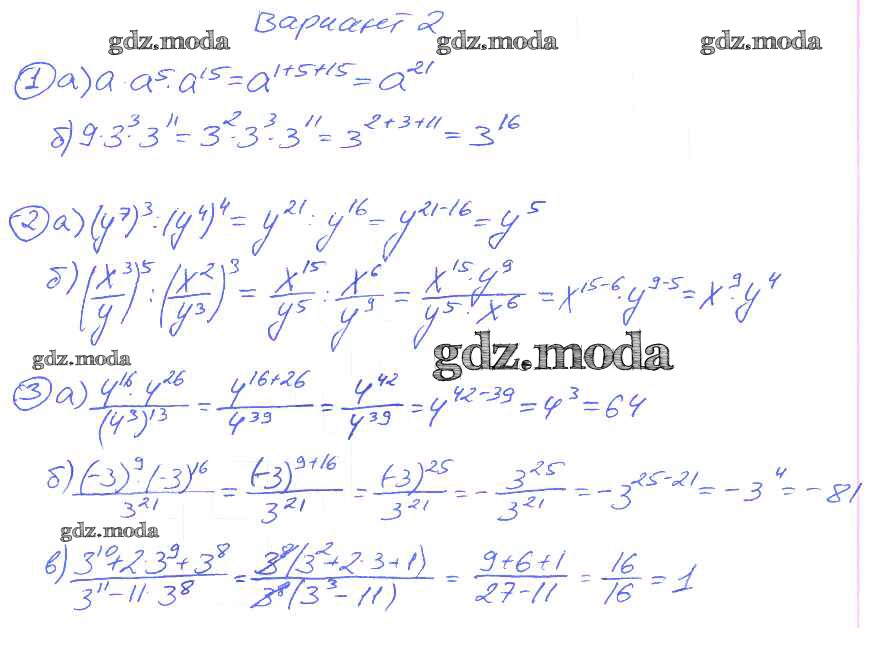 Вариант 2
gdz.moda gdz.moda gdz.moda
① а) a · a⁵ · a¹⁵ = a¹⁺⁵⁺¹⁵ = a²¹
б) 9 · 3³ · 3¹¹ = 3² · 3³ · 3¹¹ = 3²⁺³⁺¹¹ = 3¹⁶
② а) (y⁷)³ : (y⁴)⁴ = y²¹ : y¹⁶ = y²¹⁻¹⁶ = y⁵
б) (x³/y)⁵ : (x²/y³)³ = x¹⁵/y⁵ : x⁶/y⁹ = x¹⁵ · y⁹/y⁵ · x⁶ = x¹⁵⁻⁶ · y⁹⁻⁵ = x⁹ · y⁴
gdz.moda gdz.moda
③ а) 4¹⁶ · 4²⁶/(4³)¹³ = 4¹⁶⁺²⁶/4³⁹ = 4⁴²/4³⁹ = 4⁴²⁻³⁹ = 4³ = 64
б) (-3)⁹ · (-3)¹⁶/3²¹ = (-3)⁹⁺¹⁶/3²¹ = (-3)²⁵/3²¹ = - 3²⁵/3²¹ = -3²⁵⁻²¹ = -3⁴ = -81
gdz.moda
в) 3¹⁰ + 2 · 3⁹ + 3⁸/3¹¹ - 11 · 3⁸ = 3⁸(3² + 2 · 3 + 1)/3⁸(3³ - 11) = 9 + 6 + 1/27 - 11 = 16/16 = 1